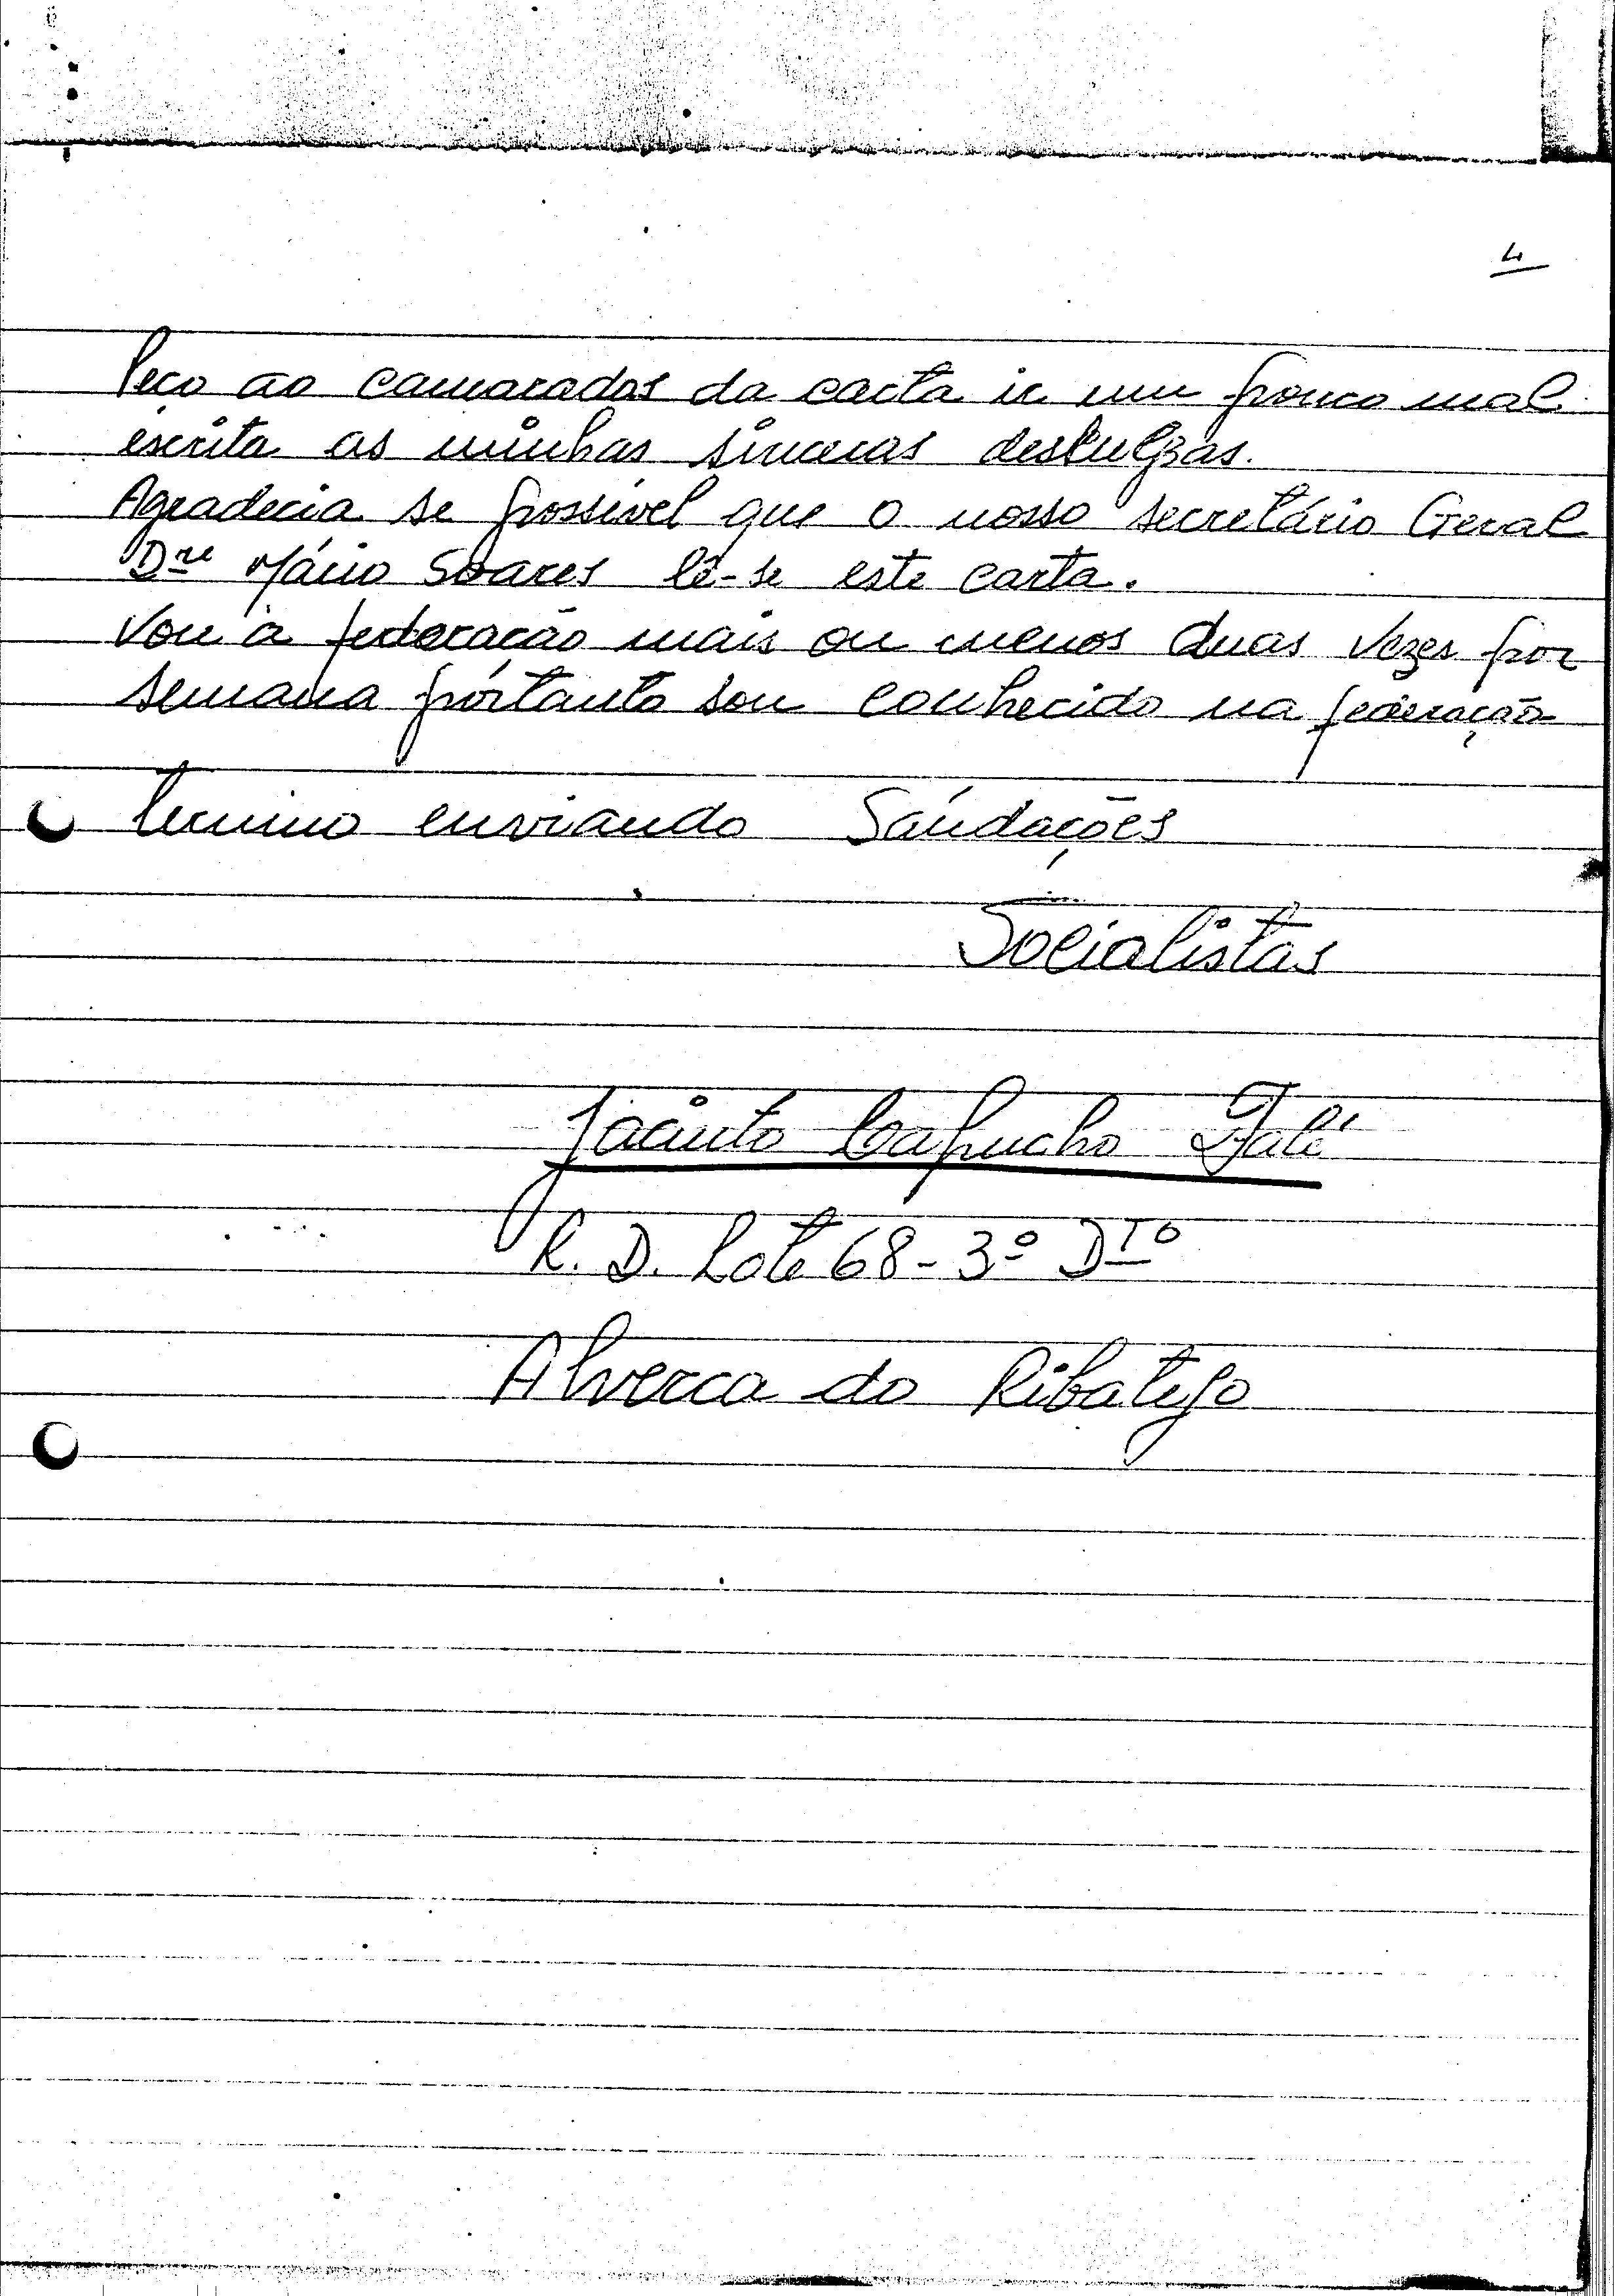 4
Peço ao camaradas da carta ir um pouco mal
escrita as minhas sinceras desculpas.
Agradecia se possível que o nosso secretário Geral
Dre Mário Soares lê-se este carta.
Vou à federação mais ou menos duas vezes por
semana portanto sou conhecido na federação
Termino enviando Saúdações
Socialistas
Jacinto Capucho Falé
R. D. Lote 68 - 3º DTO
Alverca do Ribatejo